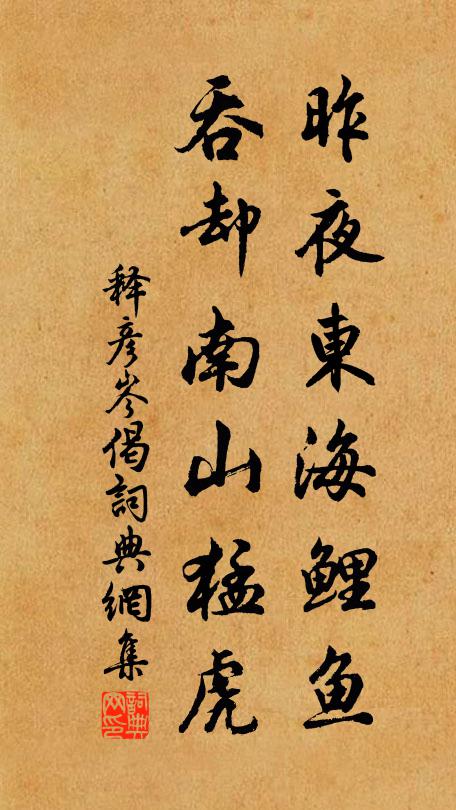 昨夜東海鯉鱼
吞却南山猛虎
释彦岑偈詞典網集
詞典网印